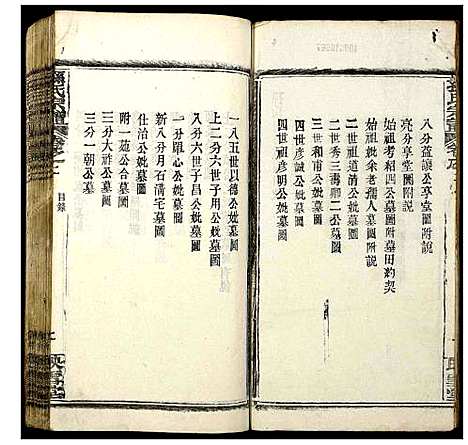 八分益讓公享堂圖附說
亮分享堂圖附說
始祖考相四公墓圖附墓田約契
始祖妣余老孺人墓圖附說
二世祖道清公妣墓圖
二世秀三壽郷二公墓圖
三世和甫公妣墓圖
四世彥誠公妣墓圖
四世祖彥明公妣墓圖
孫氏宗譜
目錄
一八五世以德公妣墓圖
上二分六世子用公妣墓圖
八分六世子昌公妣墓圖
一分單心公妣墓圖
新八分月石溝宅墓圖
附一葢公合墓圖
三分大祚公墓
三分一朝公墓
映雪堂